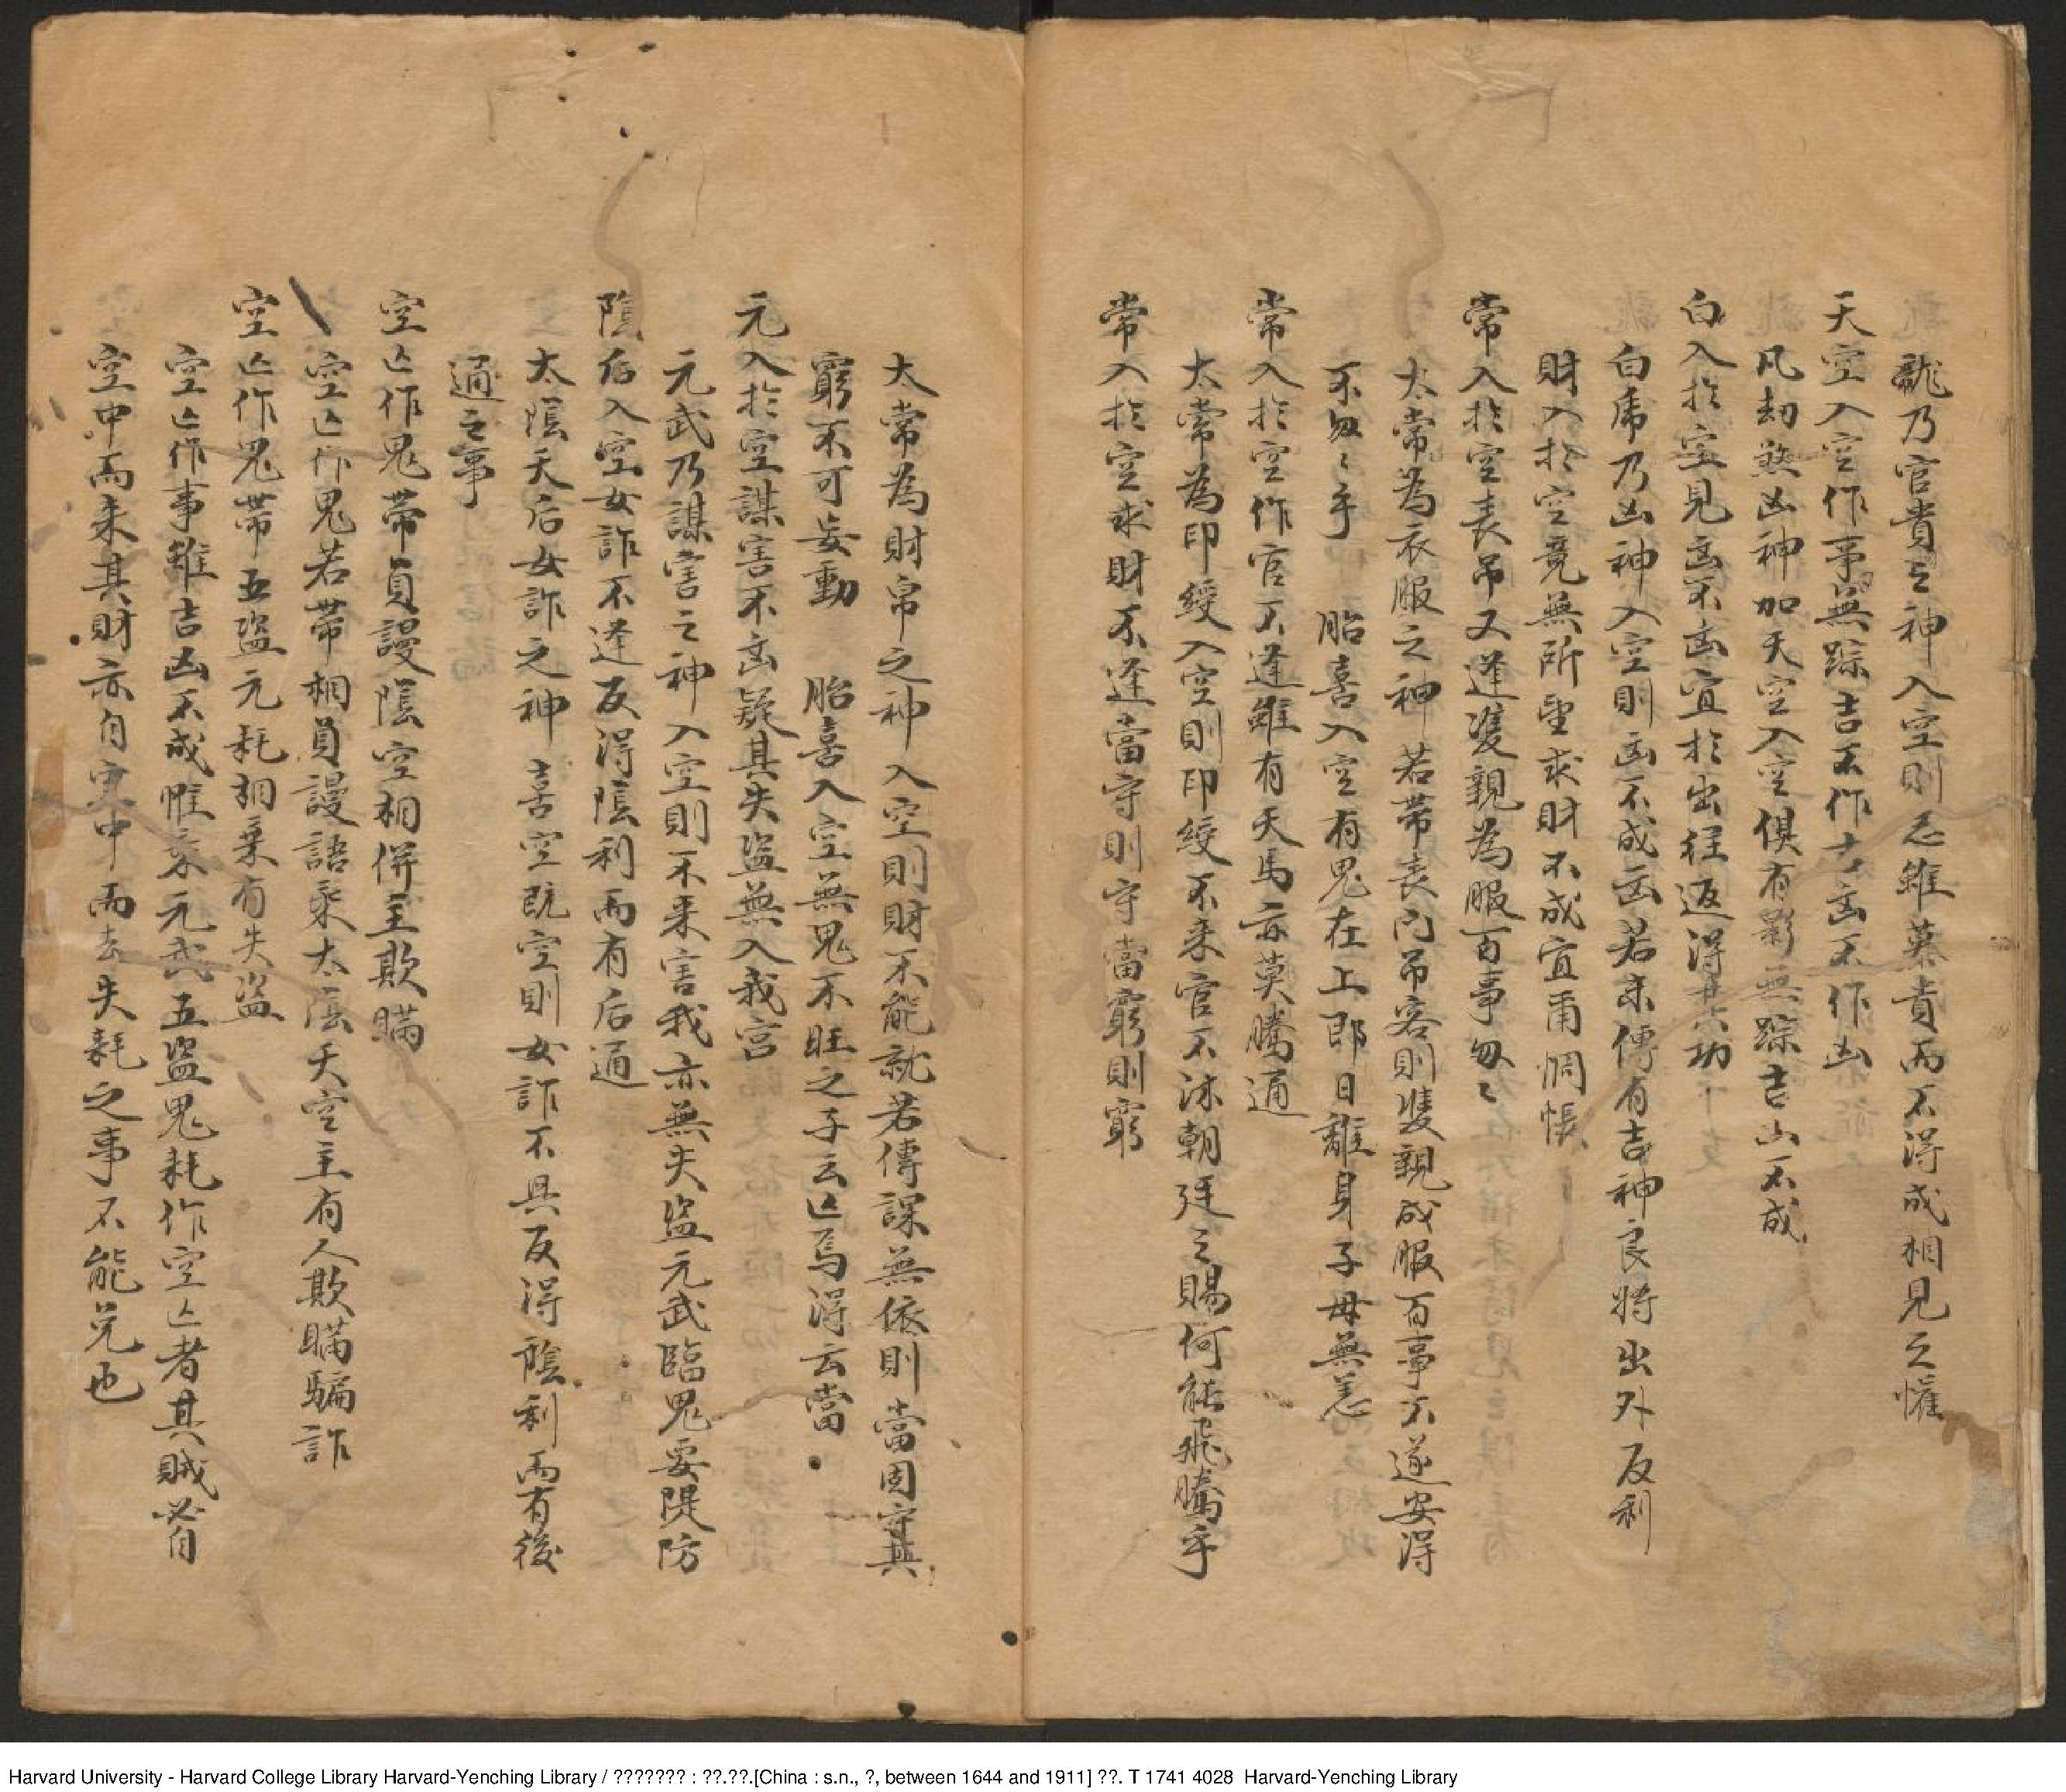 龍乃官貴之神入空則忌雖慕貴而不得成相見之懽
天空入空作事無踪吉不作吉凶不作凶
凡劫煞凶神加天空入空俱有影無踪吉凶不成
白入於空見凶不凶宜於出徃返得其功
白虎乃凶神入空則凶不成凶若末傳有吉神良將出外反利
財入於空竟無所望求財不成宜甭惆悵
常入於空喪吊又逢雙親為服百事匆〻
太常為衣服之神若帶喪门吊客則雙親成服百事不遂安得
不匆〻乎　胎喜入空有鬼在上即日離身子母無恙
常入於空作官不逢雖有天馬亦莫騰通
太常為印綬入空則印綬不来官不沐朝廷之賜何能飛騰乎
常入於空求財不逢當守則守當窮則窮
太常為財帛之神入空則財不能就若傳課無依則當固守其
窮不可妄動　胎喜入空無鬼不旺之子云亾焉得云當
元入於空謀害不凶疑其失盜無入我宮
元武乃謀害之神入空則不来害我亦無失盜元武臨鬼要隄防
陰后入空女詐不逢反得陰利而有后通
太陰天后女詐之神喜空既空則女詐不具反得陰利而有後
通之事
空亾作鬼帶員謾陰空相併主欺瞞
空亾作鬼若帶相員謾語乘太陰天空主有人欺瞞騙詐
空亾作鬼帶五盜元耗相乘有失盜
空亾作事雖吉凶不成惟乘元武五盜鬼耗作空亾者其賊必自
空中而来其財亦自空中而去失耗之事不能免也
Harvard University - Harvard College Library Harvard-Yenching Library / ??????? : ??.??.[China : s.n., ?, between 1644 and 1911] ??. T 1741 4028 Harvard-Yenching Library